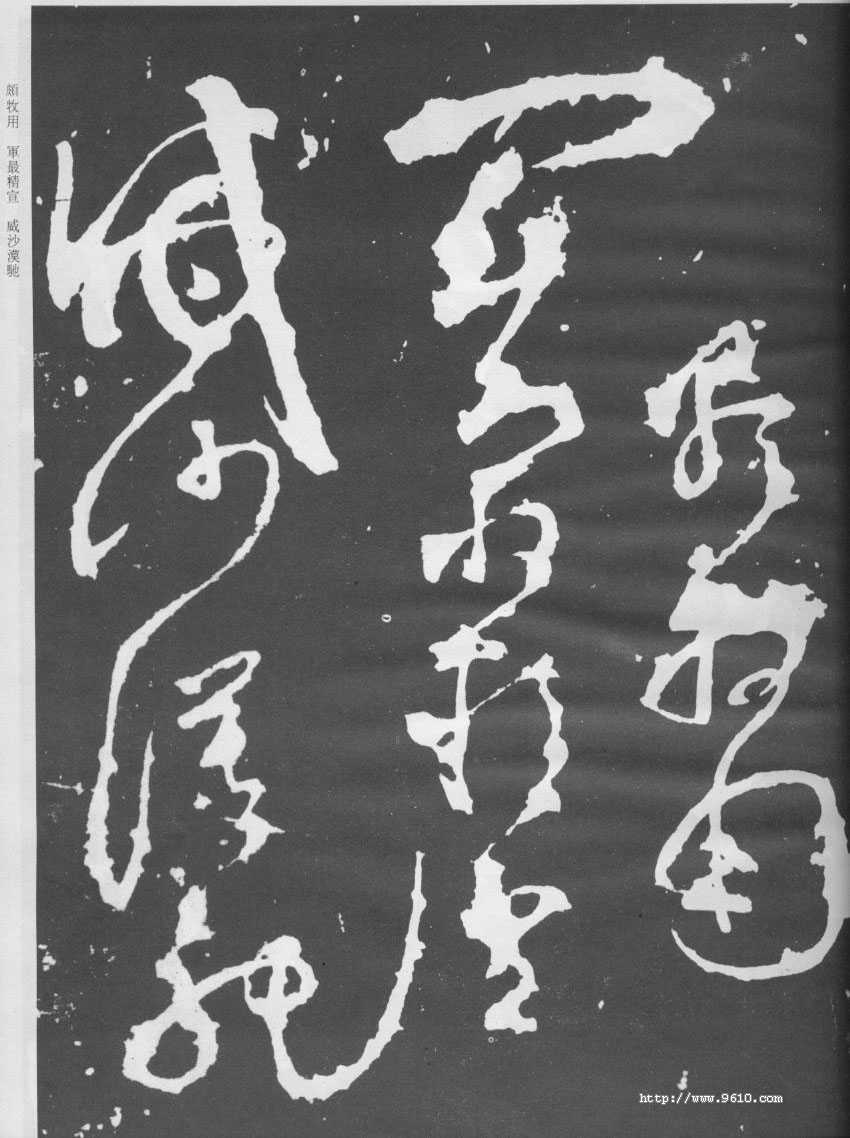 頗牧用
軍最精宣
威沙漠馳
頗牧用　軍最精宣　威沙漠馳
http://www.9610.com